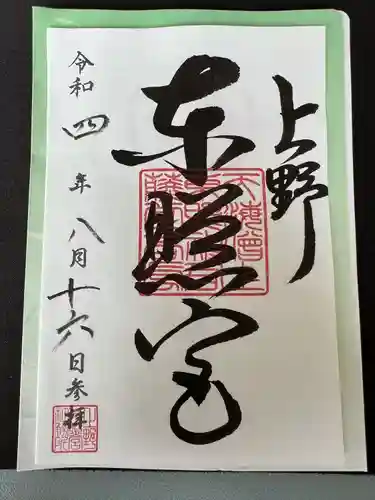 上野
東照宮
令和四年八月十六日参拝